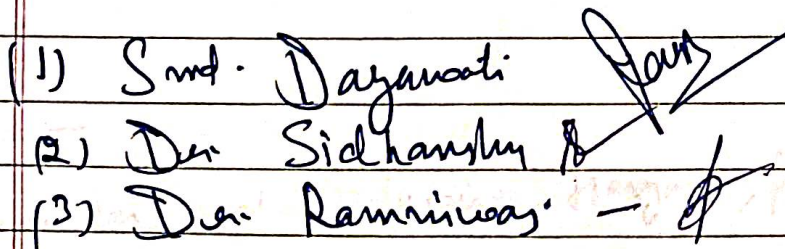 (1) Smt. Dayawati
(2) Dr. Sidhanshu
(3) Dr. Ramniwas. -